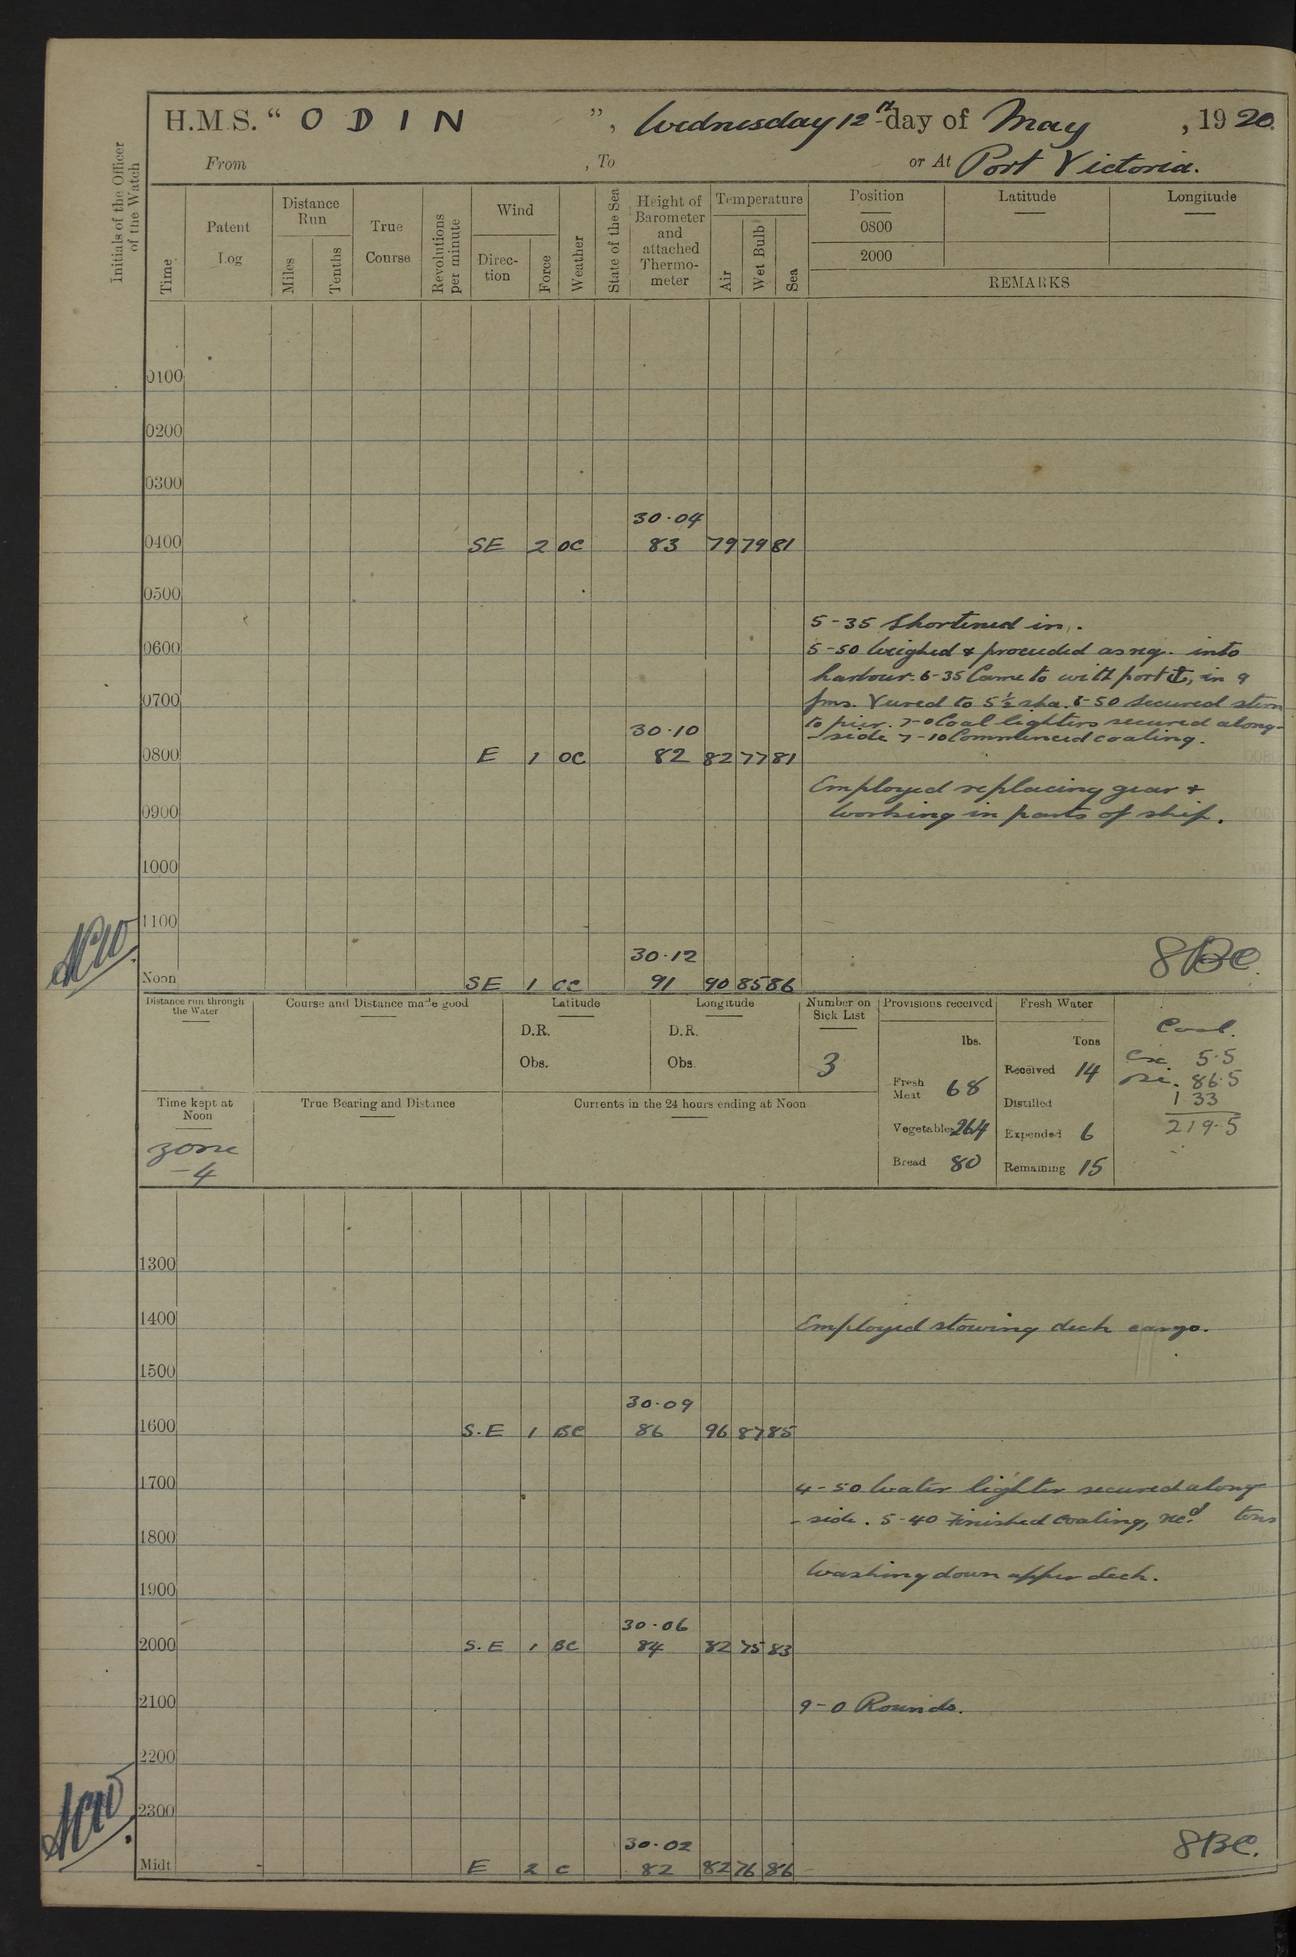 H.M.S. " ODIN ", Wednesday 12th day of May, 1920.
From , To or At Port Victoria.
Initials of the Officer of the Watch
Time Patent Log Distance Run Miles Tenths True Course Revolutions per minute Wind Direction Force Weather State of the Sea Height of Barometer and attached Thermometer Temperature Air Wet Bulb Sea Position Latitude Longitude
0800
2000
REMARKS
0100
0200
0300
30·04
0400 SE 2 OC 83 79 79 81
0500
5-35 Shortened in.
0600 5-50 Weighed & proceeded as req. into
harbour. 6-35 Came to with port ⚓, in 9
0700 fms. Veered to 5½ shs. 6-50 Secured stern
to pier. 7-0 Coal lighters secured along-
30·10
-side 7-10 Commenced coaling.
0800 E 1 OC 82 82 77 81
Employed replacing gear &
0900 working in parts of ship.
1000
1100
NCW
30·12
8BC.
Noon SE 1 CC 91 90 85 86
Distance run through the Water Course and Distance made good Latitude Longitude Number on Sick List Provisions received Fresh Water
D.R. D.R. lbs. Tons Coal.
Obs. Obs. 3 Received 14 Exp. 5·5
Fresh Meat 68 86·5
Time kept at Noon True Bearing and Distance Currents in the 24 hours ending at Noon Distilled 133
Vegetables 264 Expended 6 219·5
zone
-4 Bread 80 Remaining 15
1300
1400 Employed stowing deck cargo.
1500
30·09
1600 S.E 1 BC 86 96 87 85
1700 4-50 Water lighter secured along
-side. 5-40 Finished coaling, recd tons
1800
Washing down upper deck.
1900
30·06
2000 S.E 1 BC 84 82 75 83
2100 9-0 Rounds.
2200
NCW
2300
30·02
8BC.
Midt E 2 C 82 82 76 86